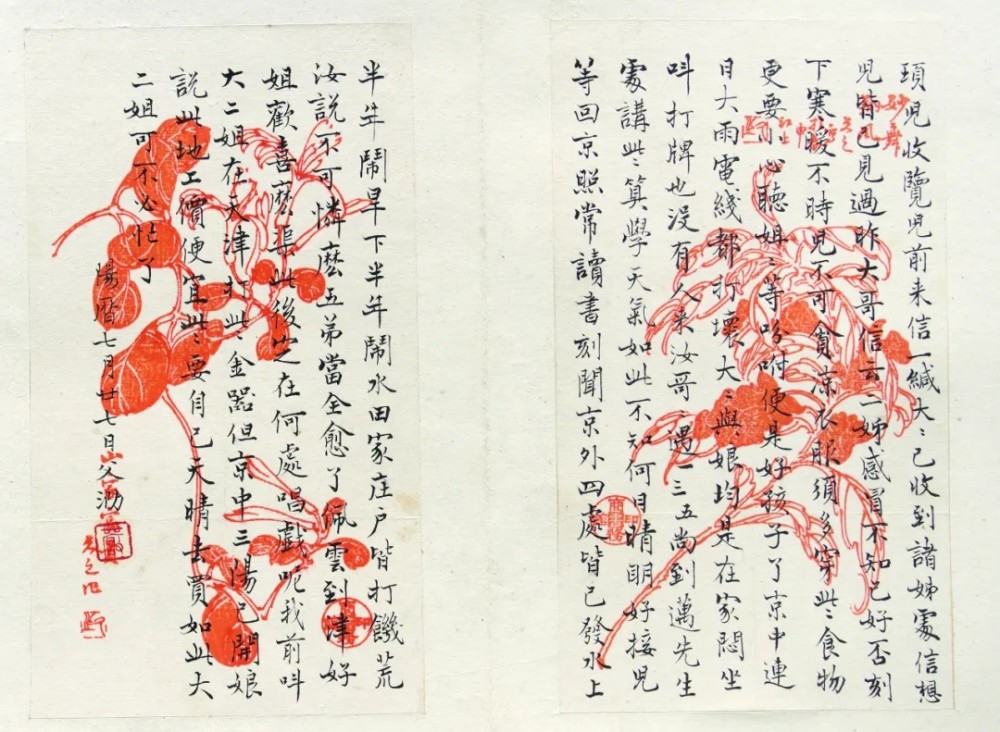 頊兒收覽兒前来信一緘大〻已收到諸姊處信想
兒皆已見過昨大哥信云二姊感冒不知已好否刻
下寒暖不時兒不可貪凉衣服須多穿些〻食物
更要小心聽姐〻等吩咐便是好孩子了京中連
日大雨電綫都打壞大〻與娘均是在家悶坐
呌打牌也没有人来汝哥〻遇一三五尚到邁先生
處講些〻算學天氣如此不知何日晴明好接兒
等回京照常讀書刻聞京外四處皆已發水上
半年鬧旱下半年鬧水田家庄户皆打饑荒
汝說不可憐麽五弟當全愈了佩雲到津好
姐歡喜麽渠此後芝在何處唱戲呢我前呌
大二姐在天津打些〻金器但京中三陽已開娘
說此地工價便宜些〻要自己天晴去買如此大
二姐可不必忙了
陽曆七月廿七日山父泐